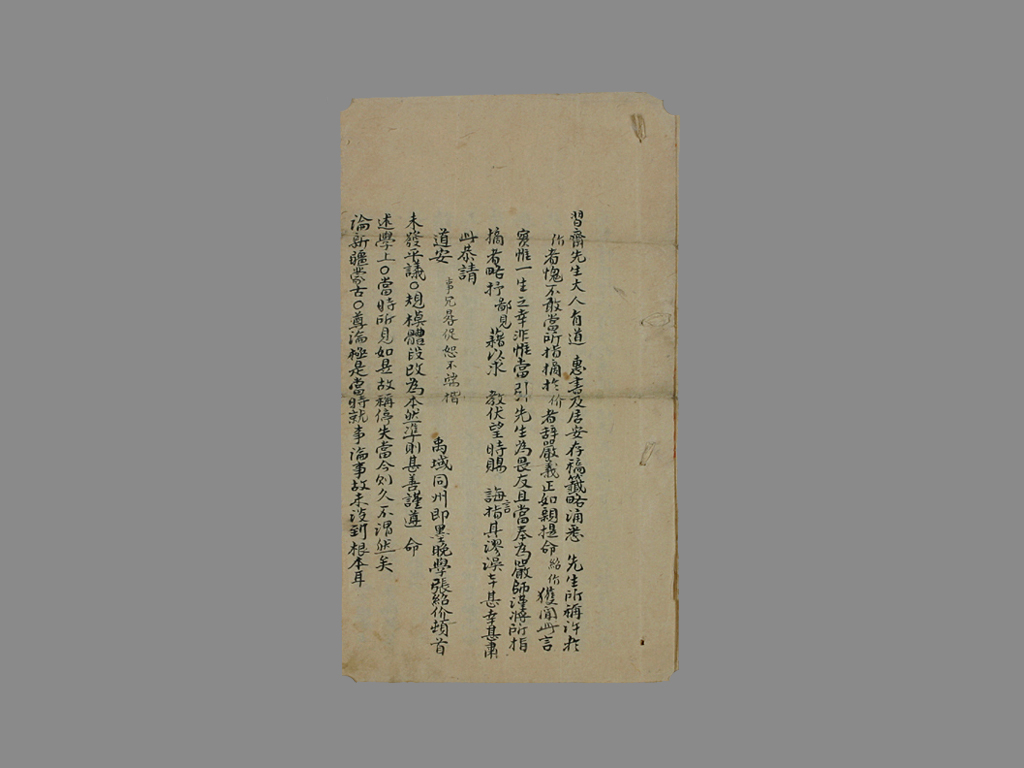 習齋先生大人有道 惠書及居安存稿籤略誦悉 先生所稱許於
价者愧不敢當所指摘於价者辭嚴義正如親提命紹价獲聞此言
實惟一生之幸非惟當引先生為畏友且當奉為嚴師謹將所指
摘者略抒鄙見藉以求 教伏望時賜 誨言指其謬誤幸甚幸甚肅
此恭請
道安 事冗暑促恕不端楷
禹域同州即墨晚學張紹价頓首
未發平議○規模體段改為本然準則甚善謹遵 命
述學上○當時所見如是故稱停失當今則久不謂然矣
論新疆蒙古○尊論極是當時就事論事故未說到根本耳